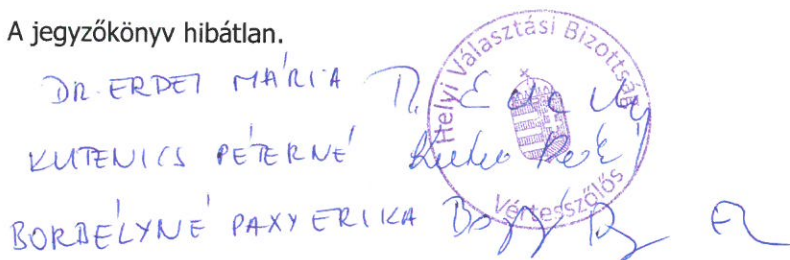 A jegyzőkönyv hibátlan.
DR. ERDEI MÁRIA
KUTENICS PÉTERNÉ
BORBÉLYNÉ PAXY ERIKA
Helyi Választási Bizottság
Vértesszőlős